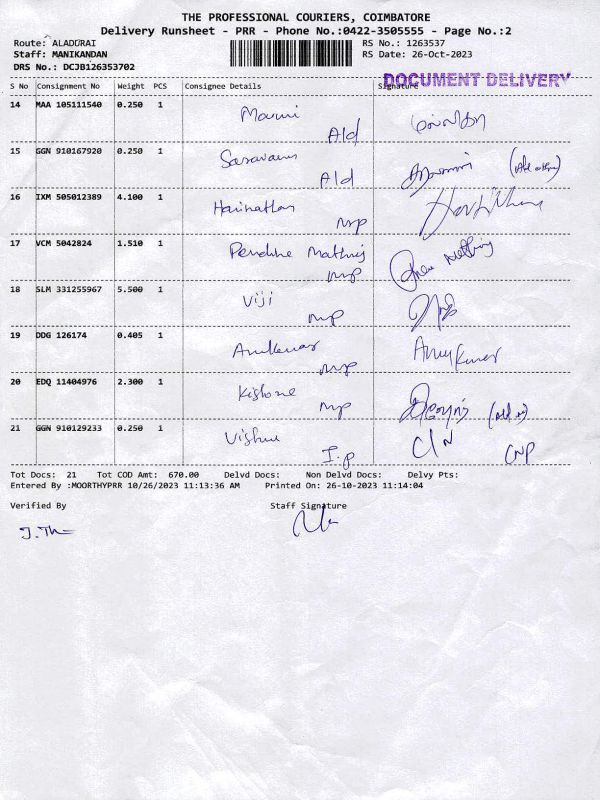 THE PROFESSIONAL COURIERS, COIMBATORE
Delivery Runsheet - PRR - Phone No.:0422-3505555 - Page No.:2
Route: ALADURAI RS No.: 1263537
Staff: MANIKANDAN RS Date: 26-Oct-2023
DRS No.: DCJB126353702
DOCUMENT DELIVERY
S No Consignment No Weight PCS Consignee Details Signature
14 MAA 105111540 0.250 1 Mouni
Ald
15 GGN 910167920 0.250 1 Saravanan
Ald
16 IXM 505012389 4.100 1 Harinathan
mp
17 VCM 5042824 1.510 1
mp
18 SLM 331255967 5.500 1 Viji
mp
19 DDG 126174 0.405 1 Arulkumar
mp
20 EDQ 11404976 2.300 1 Kishore
mp
21 GGN 910129233 0.250 1 Vishnu C/N
I.p CNP
Tot Docs: 21 Tot COD Amt: 670.00 Delvd Docs: Non Delvd Docs: Delvy Pts:
Entered By :MOORTHYPRR 10/26/2023 11:13:36 AM Printed On: 26-10-2023 11:14:04
Verified By Staff Signature